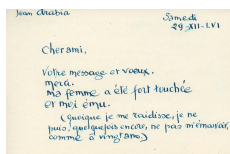 Jean Arabia
Samedi
29-XII-LVI
Cher ami,
Votre message et voeux.
merci.
ma femme a été fort touchée
et moi ému.
(quoique je me raidisse, je ne
puis, quelquefois encore, ne pas m'émouvoir,
comme à vingt ans)